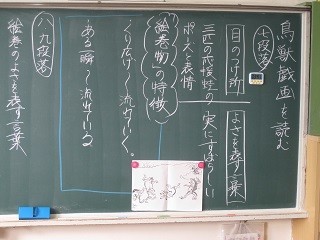 鳥獣戯画を読む
七段落
目のつけ所
よさを表す言葉
三匹の応援蛙の
ポーズと表情
実にすばらしい
「絵巻物」の特徴
くり広げ〜流れていく。
ある瞬〜流れている
八、九段落
絵巻のよさを表す言葉